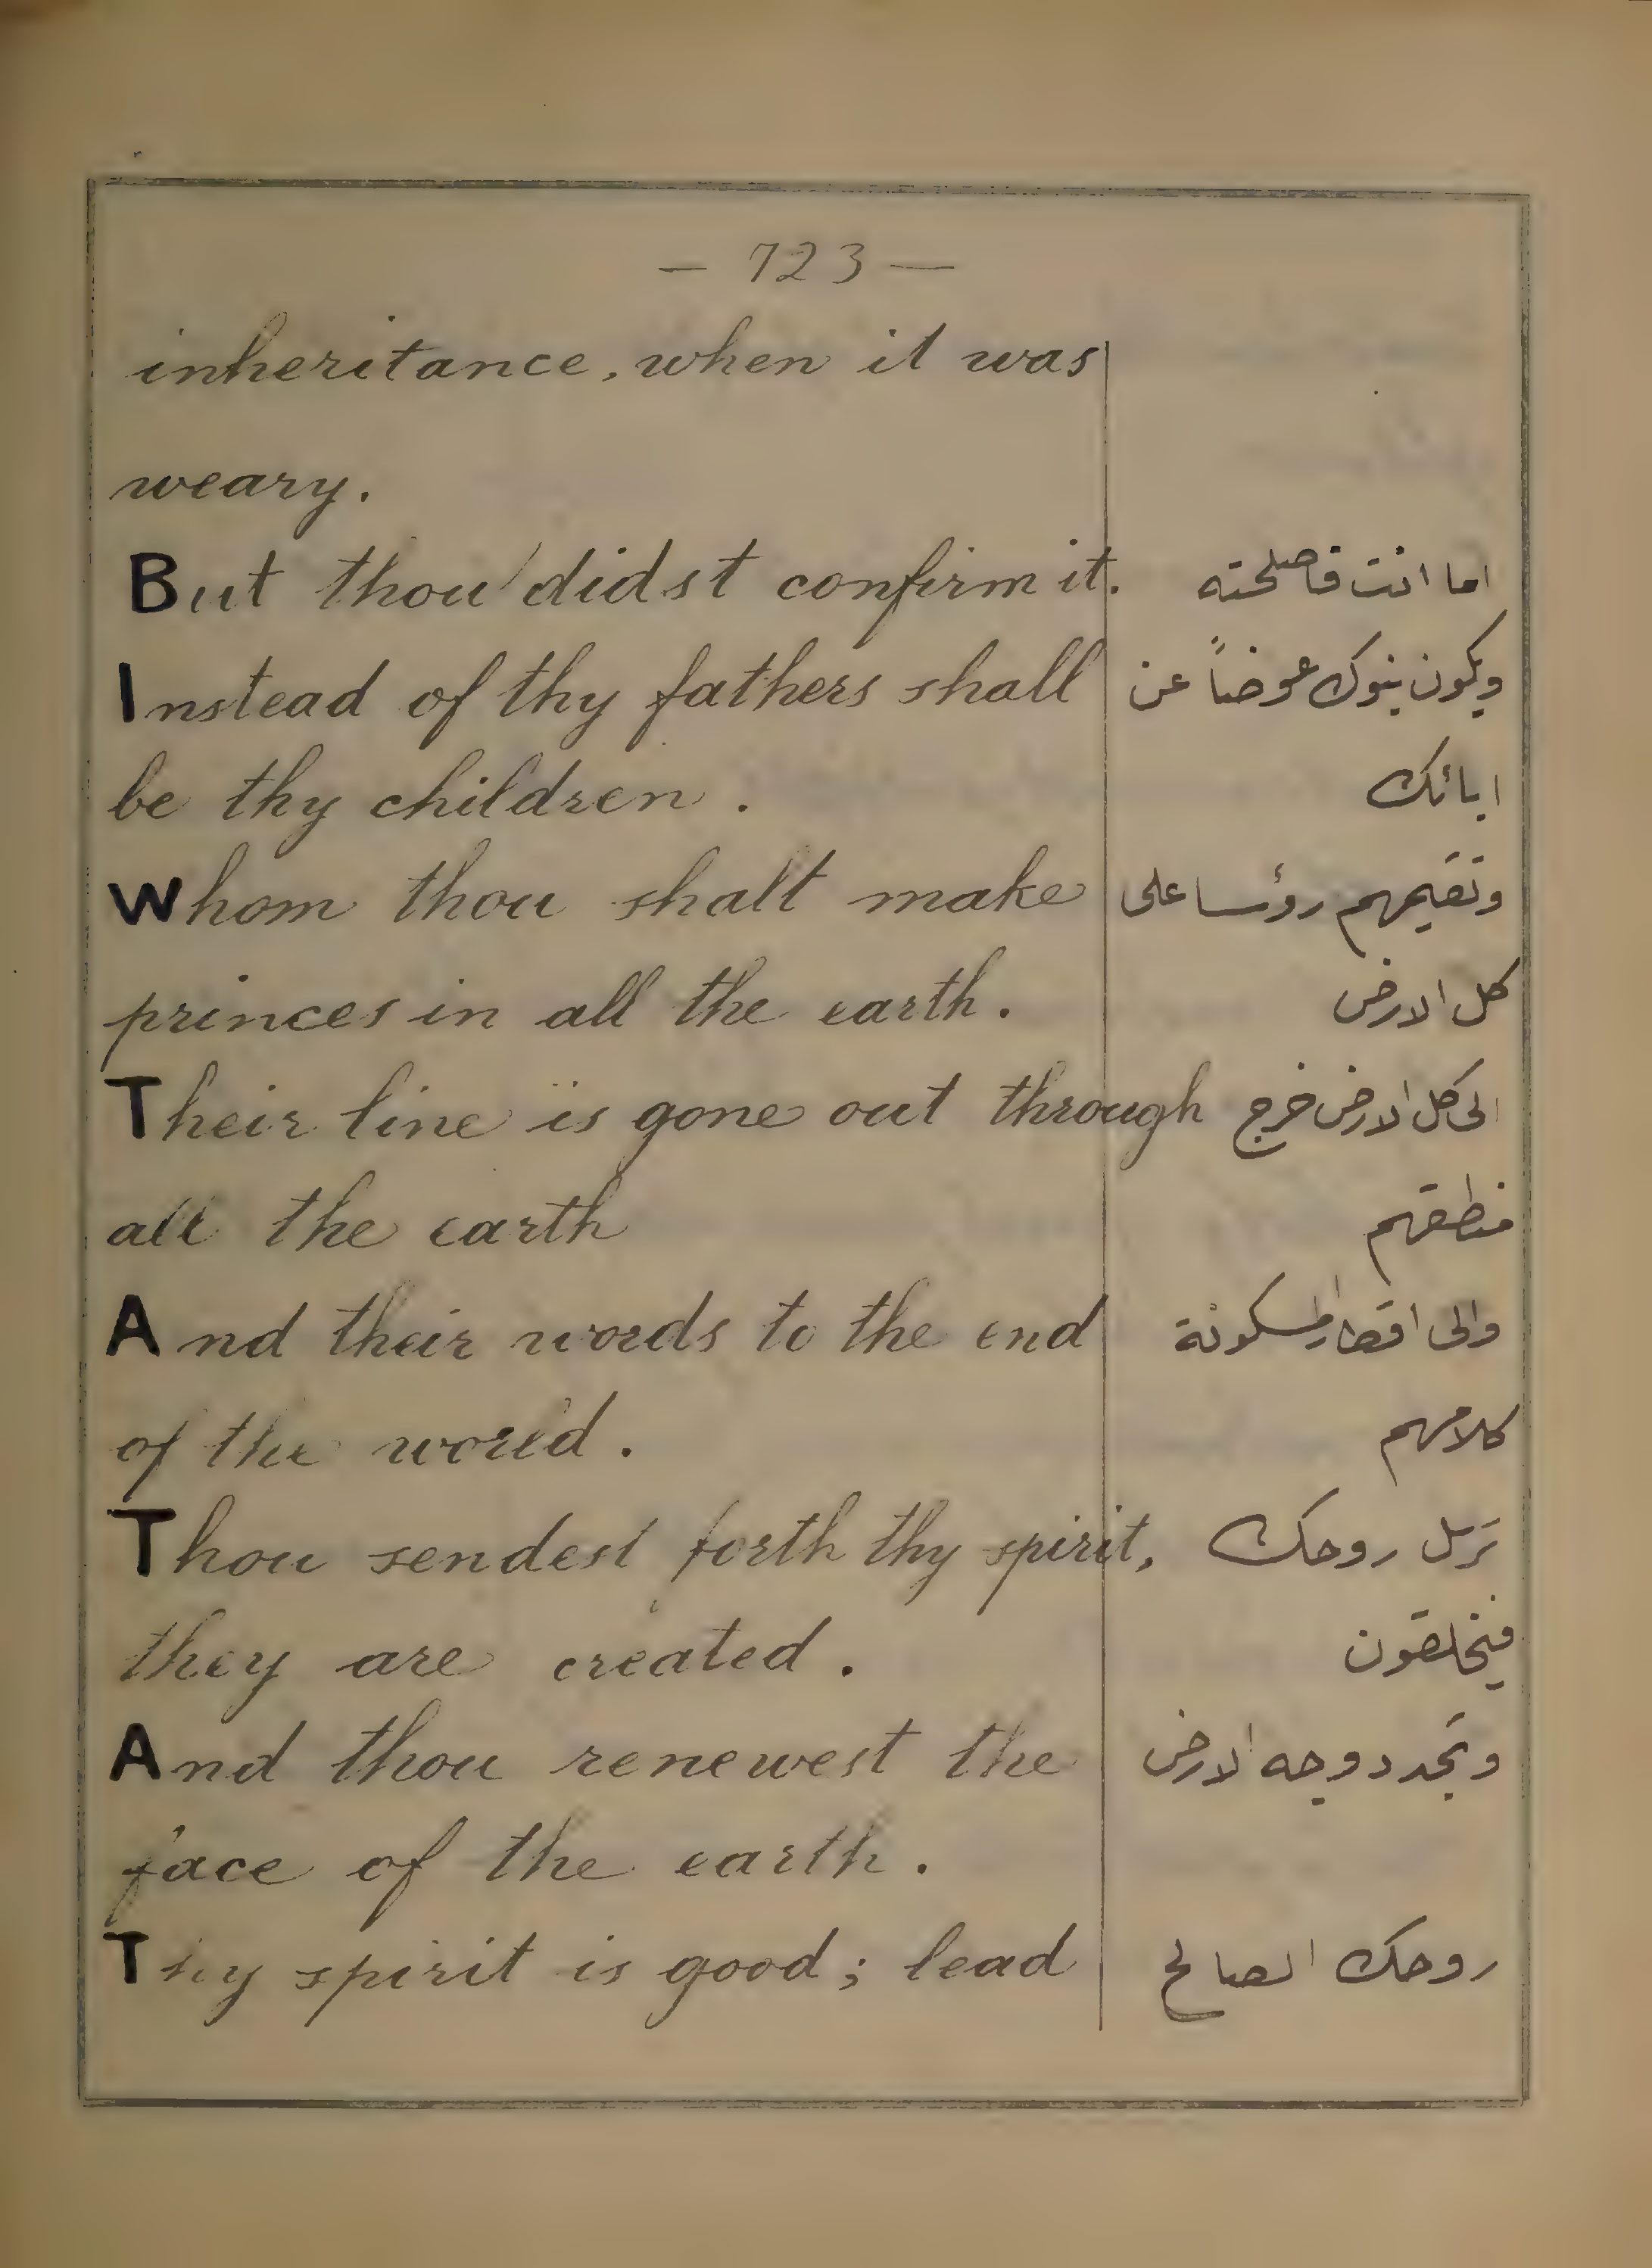 — 723 —
inheritance, when it was
weary.
But thou didst confirm it. اما انت فاصلحته
Instead of thy fathers shall ويكون بنوك عوضاً عن
be thy children. ابائك
Whom thou shalt make وتقيمهم رؤسا على
princes in all the earth. كل الارض
Their line is gone out through الى كل الارض خرج
all the earth منطقهم
And their words to the end والى اقطار المسكونة
of the world. كلامهم
Thou sendest forth thy spirit, ترسل روحك
they are created. فيخلقون
And thou renewest the وتجدد وجه الارض
face of the earth.
Thy spirit is good; lead روحك الصالح